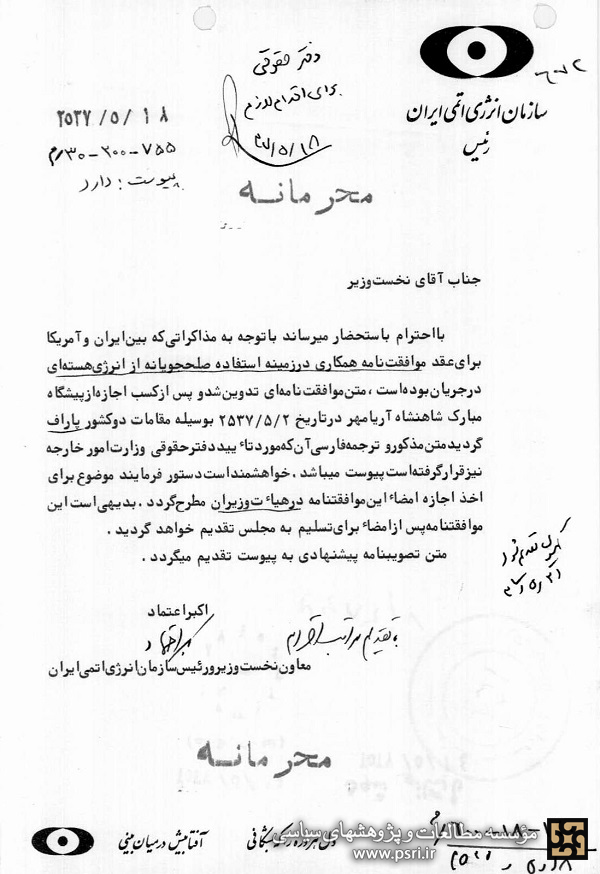 سازمان انرژی اتمی ایران
رئیس
دفتر حقوقی
برای اقدام لازم
۳۷/۵/۱۸
۲۵۳۷/۵/۱۸
۳۰-۲۰۰-۷۵۵م
پیوست: دارد
محرمانه
جناب آقای نخست‌وزیر
بااحترام باستحضار میرساند باتوجه به مذاکراتی‌که بین‌ایران وآمریکا
برای‌عقد موافقت‌نامه همکاری درزمینه استفاده صلحجویانه از انرژی‌هسته‌ای
درجریان‌بوده‌است ، متن‌موافقت‌نامه‌ای تدوین‌شدو پس‌ازکسب اجازه‌ازپیشگاه
مبارک شاهنشاه آریامهر درتاریخ ۲۵۳۷/۵/۲ بوسیله مقامات دوکشور پاراف
گردیدمتن‌مذکورو ترجمه‌فارسی‌آن‌که‌موردتاٴ ییددفترحقوقی وزارت‌امور خارجه
نیزقرارگرفته‌است‌پیوست میباشد .خواهشمنداست‌دستور فرمایند موضوع‌برای
اخذ اجازه امضاٴ این‌موافقتنامه درهیاٴ ت‌وزیران مطرح‌گردد .بدیهی‌است این
موافقتنامه‌پس ازامضاٴ برای‌تسلیم به مجلس تقدیم خواهد گردید .
متن تصویبنامه پیشنهادی به پیوست تقدیم میگردد .
اکبراعتماد
با تقدیم مراتب احترام
معاون‌نخست‌وزیرورئیس‌سازمان‌انرژی‌اتمی‌ایران
محرمانه
آفتابیش درمیان بینی
دل هر ذره را که بشکافی
مؤسسه مطالعات و پژوهشهای سیاسی
www.psri.ir